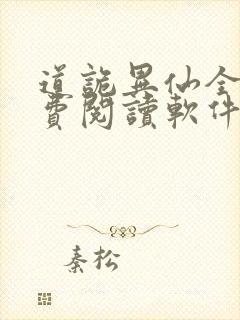 道詭異仙全
費閱讀軟件
秦松